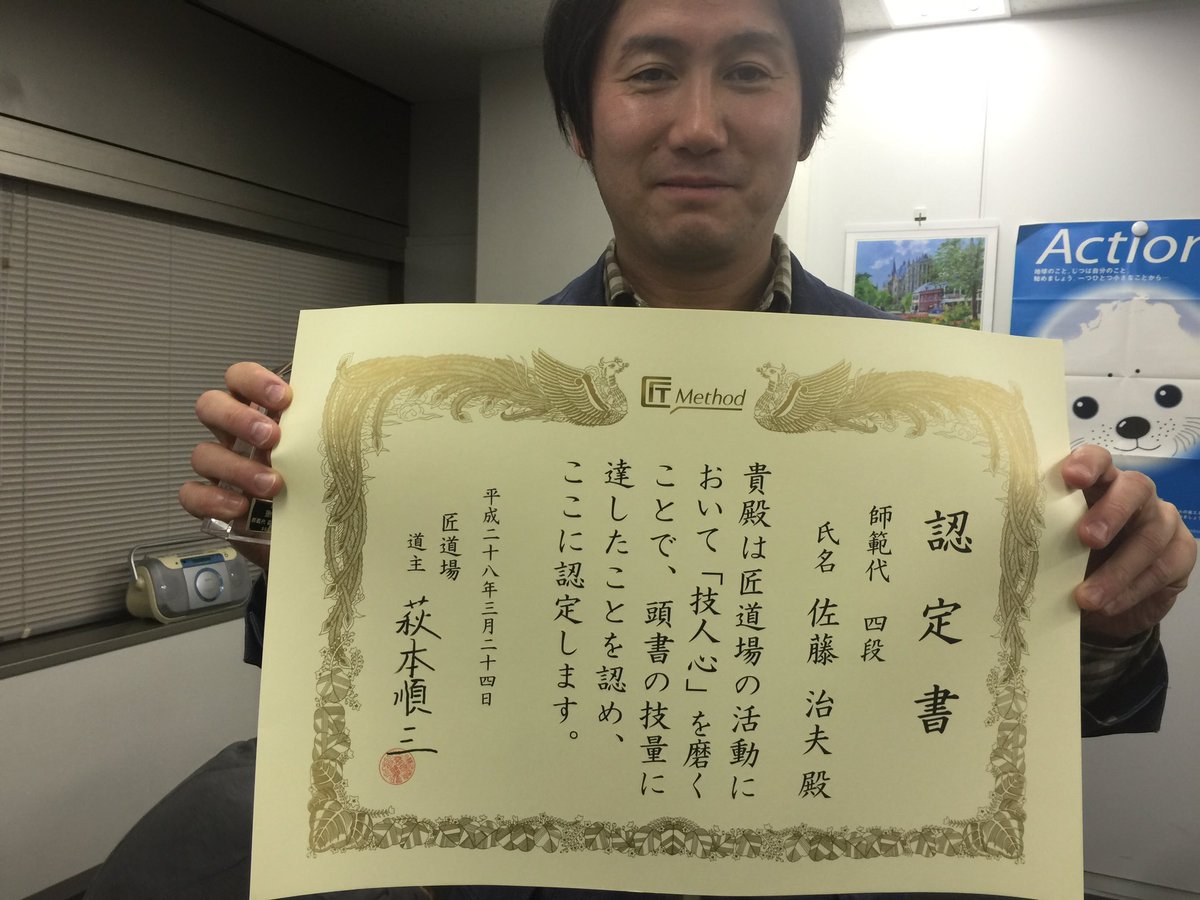 匠 IT Method
認定書
師範代 四段
氏名 佐藤 治夫 殿
貴殿は匠道場の活動に
おいて「技人心」を磨く
ことで、頭書の技量に
達したことを認め、
ここに認定します。
平成二十八年三月二十四日
匠道場
道主 萩本順三
Action
地球のこと、じつは自分のこと。
始めましょう、一つひとつ小さなことから…